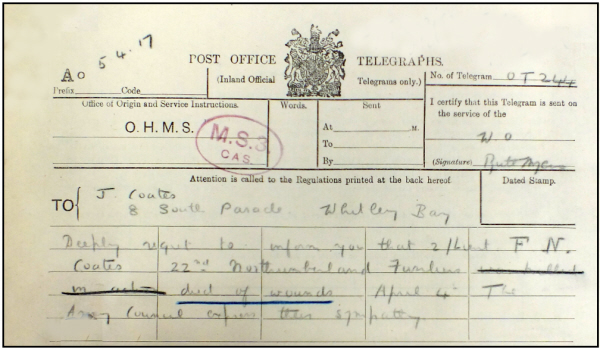 5.4.17
POST OFFICE TELEGRAPHS.
(Inland Official Telegrams only.)
No. of Telegram OT244
A o
Prefix Code
Office of Origin and Service Instructions.
O.H.M.S.
M.S.3
CAS.
Words.
Sent
At M.
To
By
I certify that this Telegram is sent on
the service of the
W O
(Signature)
Attention is called to the Regulations printed at the back hereof.
Dated Stamp.
TO { J. Coates
8 South Parade Whitley Bay
Deeply regret to inform you that 2/Lieut F N.
Coates 22nd Northumberland Fusiliers was killed
in action died of wounds April 4th The
Army Council express their sympathy.